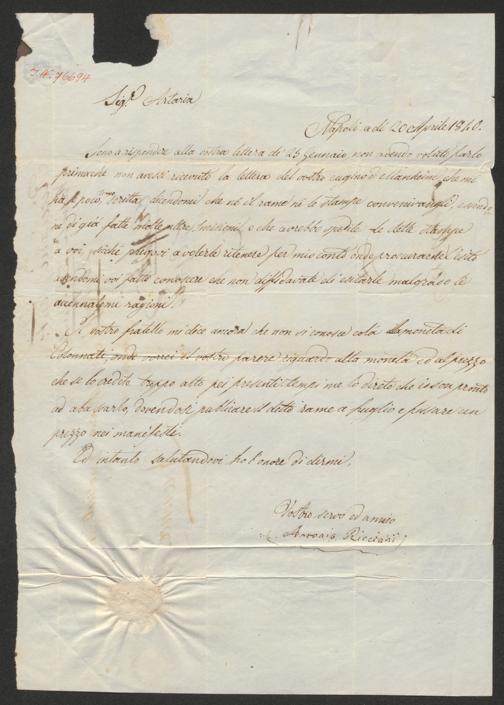 I.N. 76694
Sig.r Artaria
Napoli, a di 20 Aprile 1840.
Sono a rispondere alla vostra lettera de' 25 Gennaio, non avendo voluto farlo
primache non avessi ricevuto la lettera del vostro cugino di Manheim, che mi
ha poco scritta, dicendomi che nè il rame nè le stampe convenivangli, essendo
ne di già fatte molte altre, incisioni, e che avrebbe spedite le dette stampe
a voi, perchè pregovi a volerle ritenere per mio conto onde procurarne l'esito
avendomi voi fatto conoscere che non diffidavate di esitarle malgrado le
accennatemi ragioni.
Il vostro fratello mi dice ancora che non si conosce colà la moneta di
Colonnati, onde vorrei il vostro parere riguardo alla moneta ed al prezzo
che se lo credete troppo alto pei presenti tempi me lo direte che io son pronto
ad abbassarlo, dovendosi pubblicare il detto rame a Luglio e fissare un
prezzo nei manifesti.
Ed intanto salutandovi ho l'onore di dirmi,
Vostro servo ed amico
Ricciani